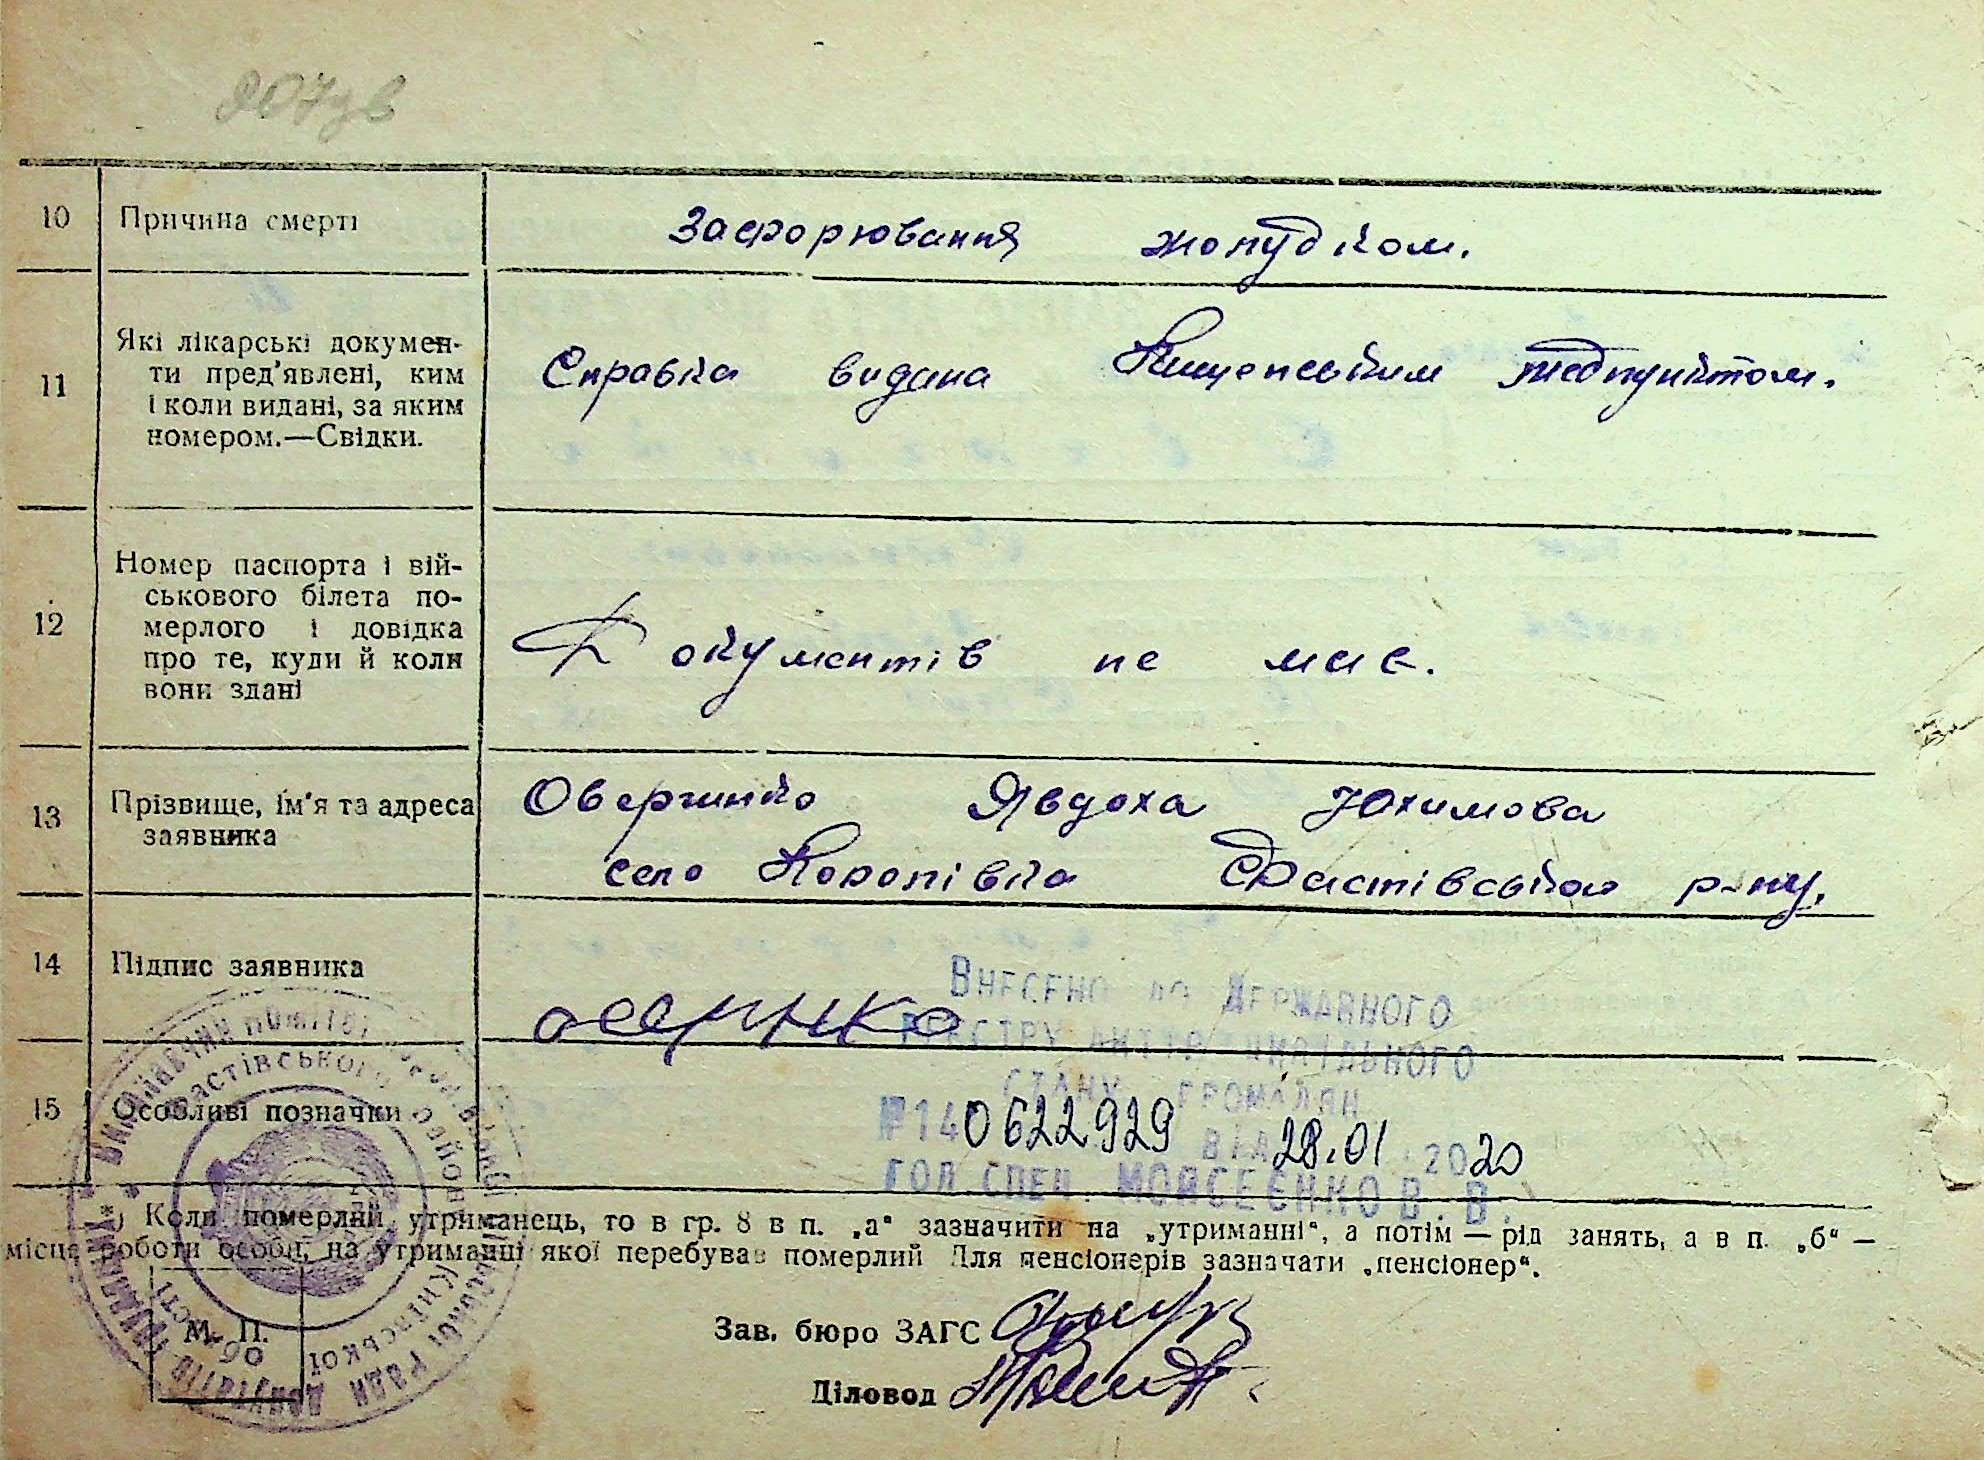 10 Причина смерті Захорювання жолудком.
11 Які лікарські докумен-
ти пред'явлені, ким
і коли видані, за яким
номером.—Свідки.
Справка видана медпунктом.
12 Номер паспорта і вій-
ськового білета по-
мерлого і довідка
про те, куди й коли
вони здані
Документів не має.
13 Прізвище, ім'я та адреса
заявника
Овершнко Явдоха Юхимова
село Королівка Фастівського р-ну.
14 Підпис заявника
Внесено до Державного
реєстру актів цивільного
стану громадян
15 Особливі позначки
№140622929 від 28.01.2020
гол спец. Моисеєнко В. В.
*) Коли померлий утриманець, то в гр. 8 в п. „а“ зазначити на „утриманні“, а потім — рід занять, а в п. „б“ —
місце роботи особи, на утриманні якої перебував померлий Для пенсіонерів зазначати „пенсіонер“.
М. П.
Зав. бюро ЗАГС
Діловод
Фастівського району Київської області